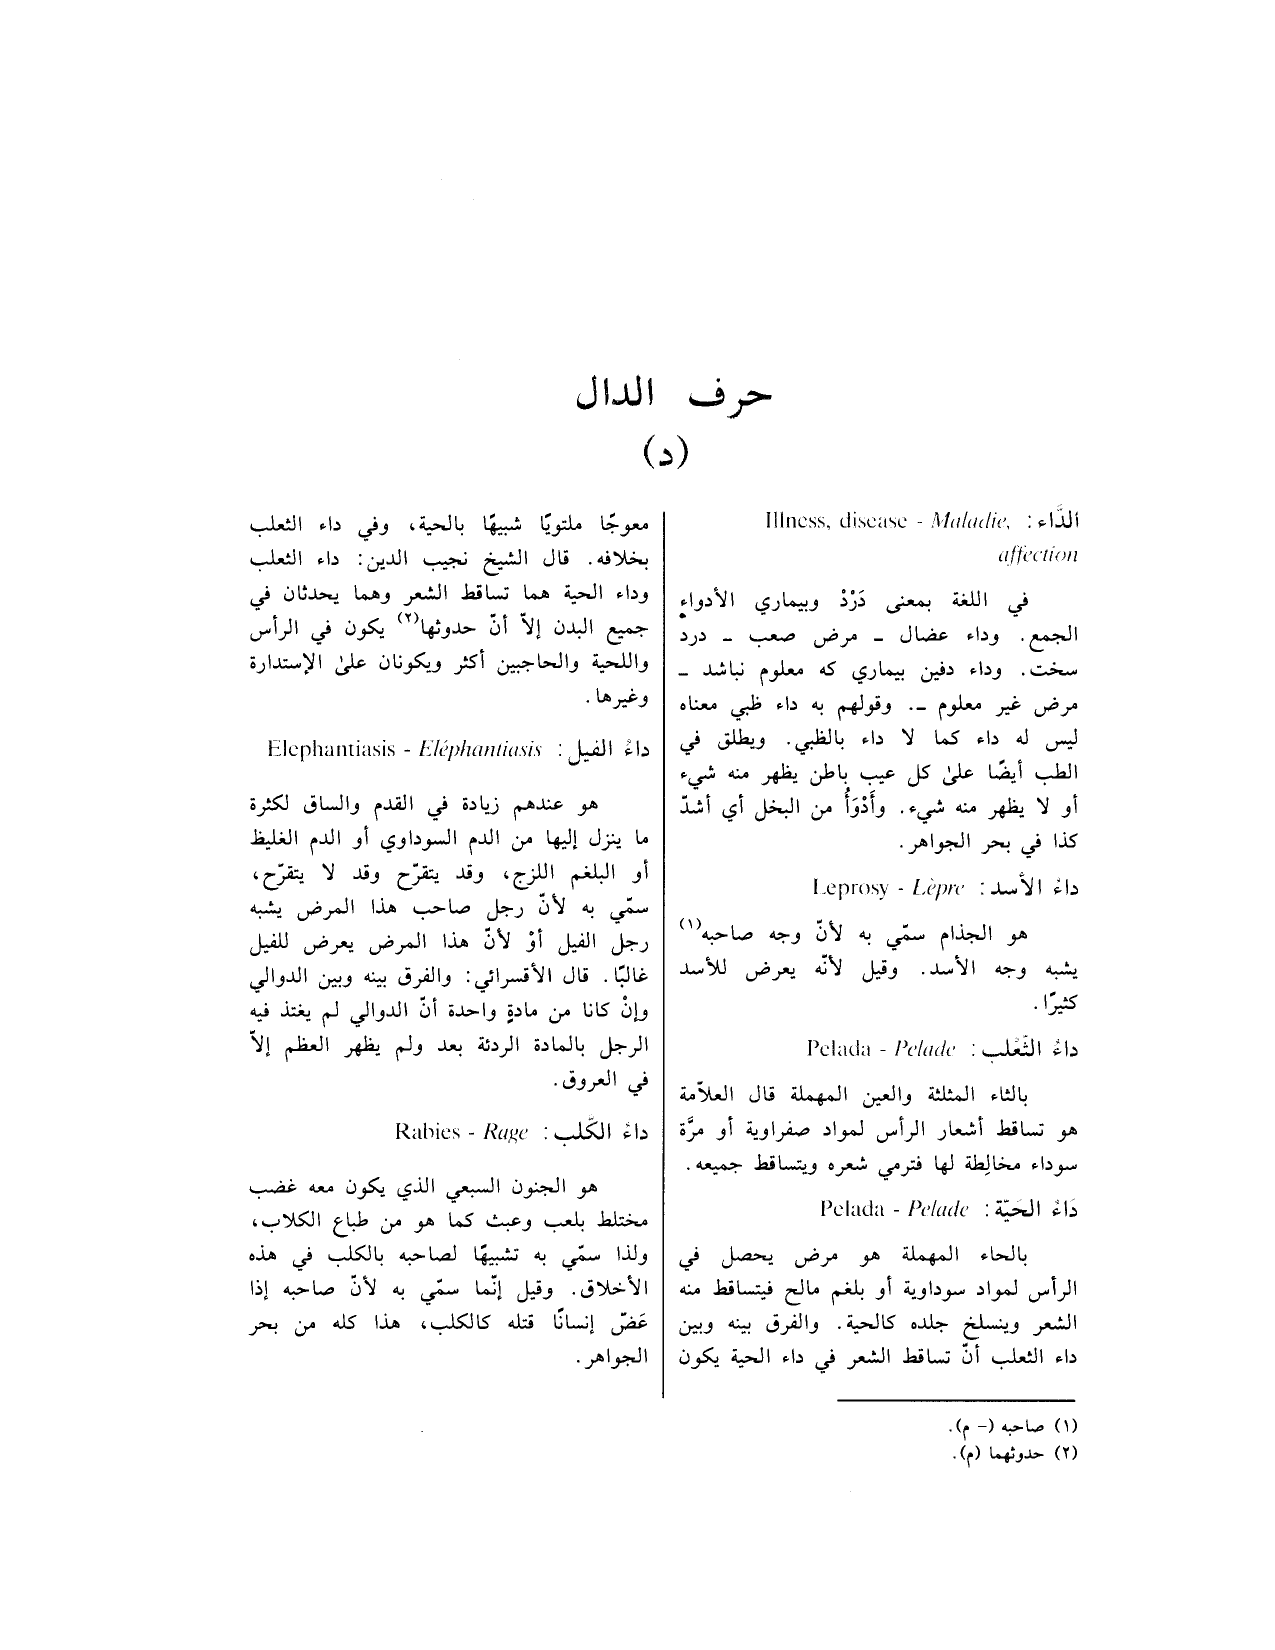 حرف الدال
(د)
الدَّاء : Illness, disease - Maladie,
affection
في اللغة بمعنى دَرْدْ وبيماري الأدواء
الجمع. وداء عضال ـ مرض صعب ـ درد
سخت. وداء دفين بيماري كه معلوم نباشد ـ
مرض غير معلوم ـ. وقولهم به داء ظبي معناه
ليس له داء كما لا داء بالظبي. ويطلق في
الطب أيضًا علىٰ كل عيب باطن يظهر منه شيء
أو لا يظهر منه شيء. وأَدْوَأُ من البخل أي أشدّ
كذا في بحر الجواهر.
داءُ الأسد : Leprosy - Lèpre
هو الجذام سمّي به لأنّ وجه صاحبه(١)
يشبه وجه الأسد. وقيل لأنّه يعرض للأسد
كثيرًا.
داءُ الثَّعْلب : Pelada - Pelade
بالثاء المثلثة والعين المهملة قال العلاّمة
هو تساقط أشعار الرأس لمواد صفراوية أو مرَّة
سوداء مخالِطة لها فترمي شعره ويتساقط جميعه.
دَاءُ الحَيّة : Pelada - Pelade
بالحاء المهملة هو مرض يحصل في
الرأس لمواد سوداوية أو بلغم مالح فيتساقط منه
الشعر وينسلخ جلده كالحية. والفرق بينه وبين
داء الثعلب أنّ تساقط الشعر في داء الحية يكون
معوجًا ملتويًا شبيهًا بالحية، وفي داء الثعلب
بخلافه. قال الشيخ نجيب الدين: داء الثعلب
وداء الحية هما تساقط الشعر وهما يحدثان في
جميع البدن إلاّ أنّ حدوثها(٢) يكون في الرأس
واللحية والحاجبين أكثر ويكونان علىٰ الإستدارة
وغيرها.
داءُ الفيل : Elephantiasis - Eléphantiasis
هو عندهم زيادة في القدم والساق لكثرة
ما ينزل إليها من الدم السوداوي أو الدم الغليظ
أو البلغم اللزج، وقد يتقرّح وقد لا يتقرّح،
سمّي به لأنّ رجل صاحب هذا المرض يشبه
رجل الفيل أوْ لأنّ هذا المرض يعرض للفيل
غالبًا. قال الأقسرائي: والفرق بينه وبين الدوالي
وإنْ كانا من مادةٍ واحدة أنّ الدوالي لم يغتذ فيه
الرجل بالمادة الردئة بعد ولم يظهر العظم إلاّ
في العروق.
داءُ الكَّلب : Rabies - Rage
هو الجنون السبعي الذي يكون معه غضب
مختلط بلعب وعبث كما هو من طباع الكلاب،
ولذا سمّي به تشبيهًا لصاحبه بالكلب في هذه
الأخلاق. وقيل إنّما سمّي به لأنّ صاحبه إذا
عَضّ إنسانًا قتله كالكلب، هذا كله من بحر
الجواهر.
(١) صاحبه (– م).
(٢) حدوثهما (م).